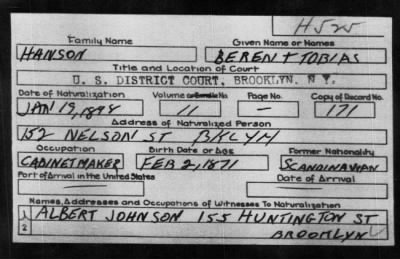 H525
Family Name Given Name or Names
HANSON BERENT TOBIAS
Title and Location of Court
U. S. DISTRICT COURT, BROOKLYN. N Y.
Date of Naturalization Volume or Bundle No. Page No. Copy of Record No.
JAN 19, 1894 11 — 171
Address of Naturalized Person
152 NELSON ST BKLYN
Occupation Birth Date or Age Former Nationality
CABINETMAKER FEB 2, 1871 SCANDINAVIAN
Port of Arrival in the United States Date of Arrival
Names, Addresses and Occupations of Witnesses To Naturalization
1 ALBERT JOHNSON 155 HUNTINGTON ST
2 BROOKLYN